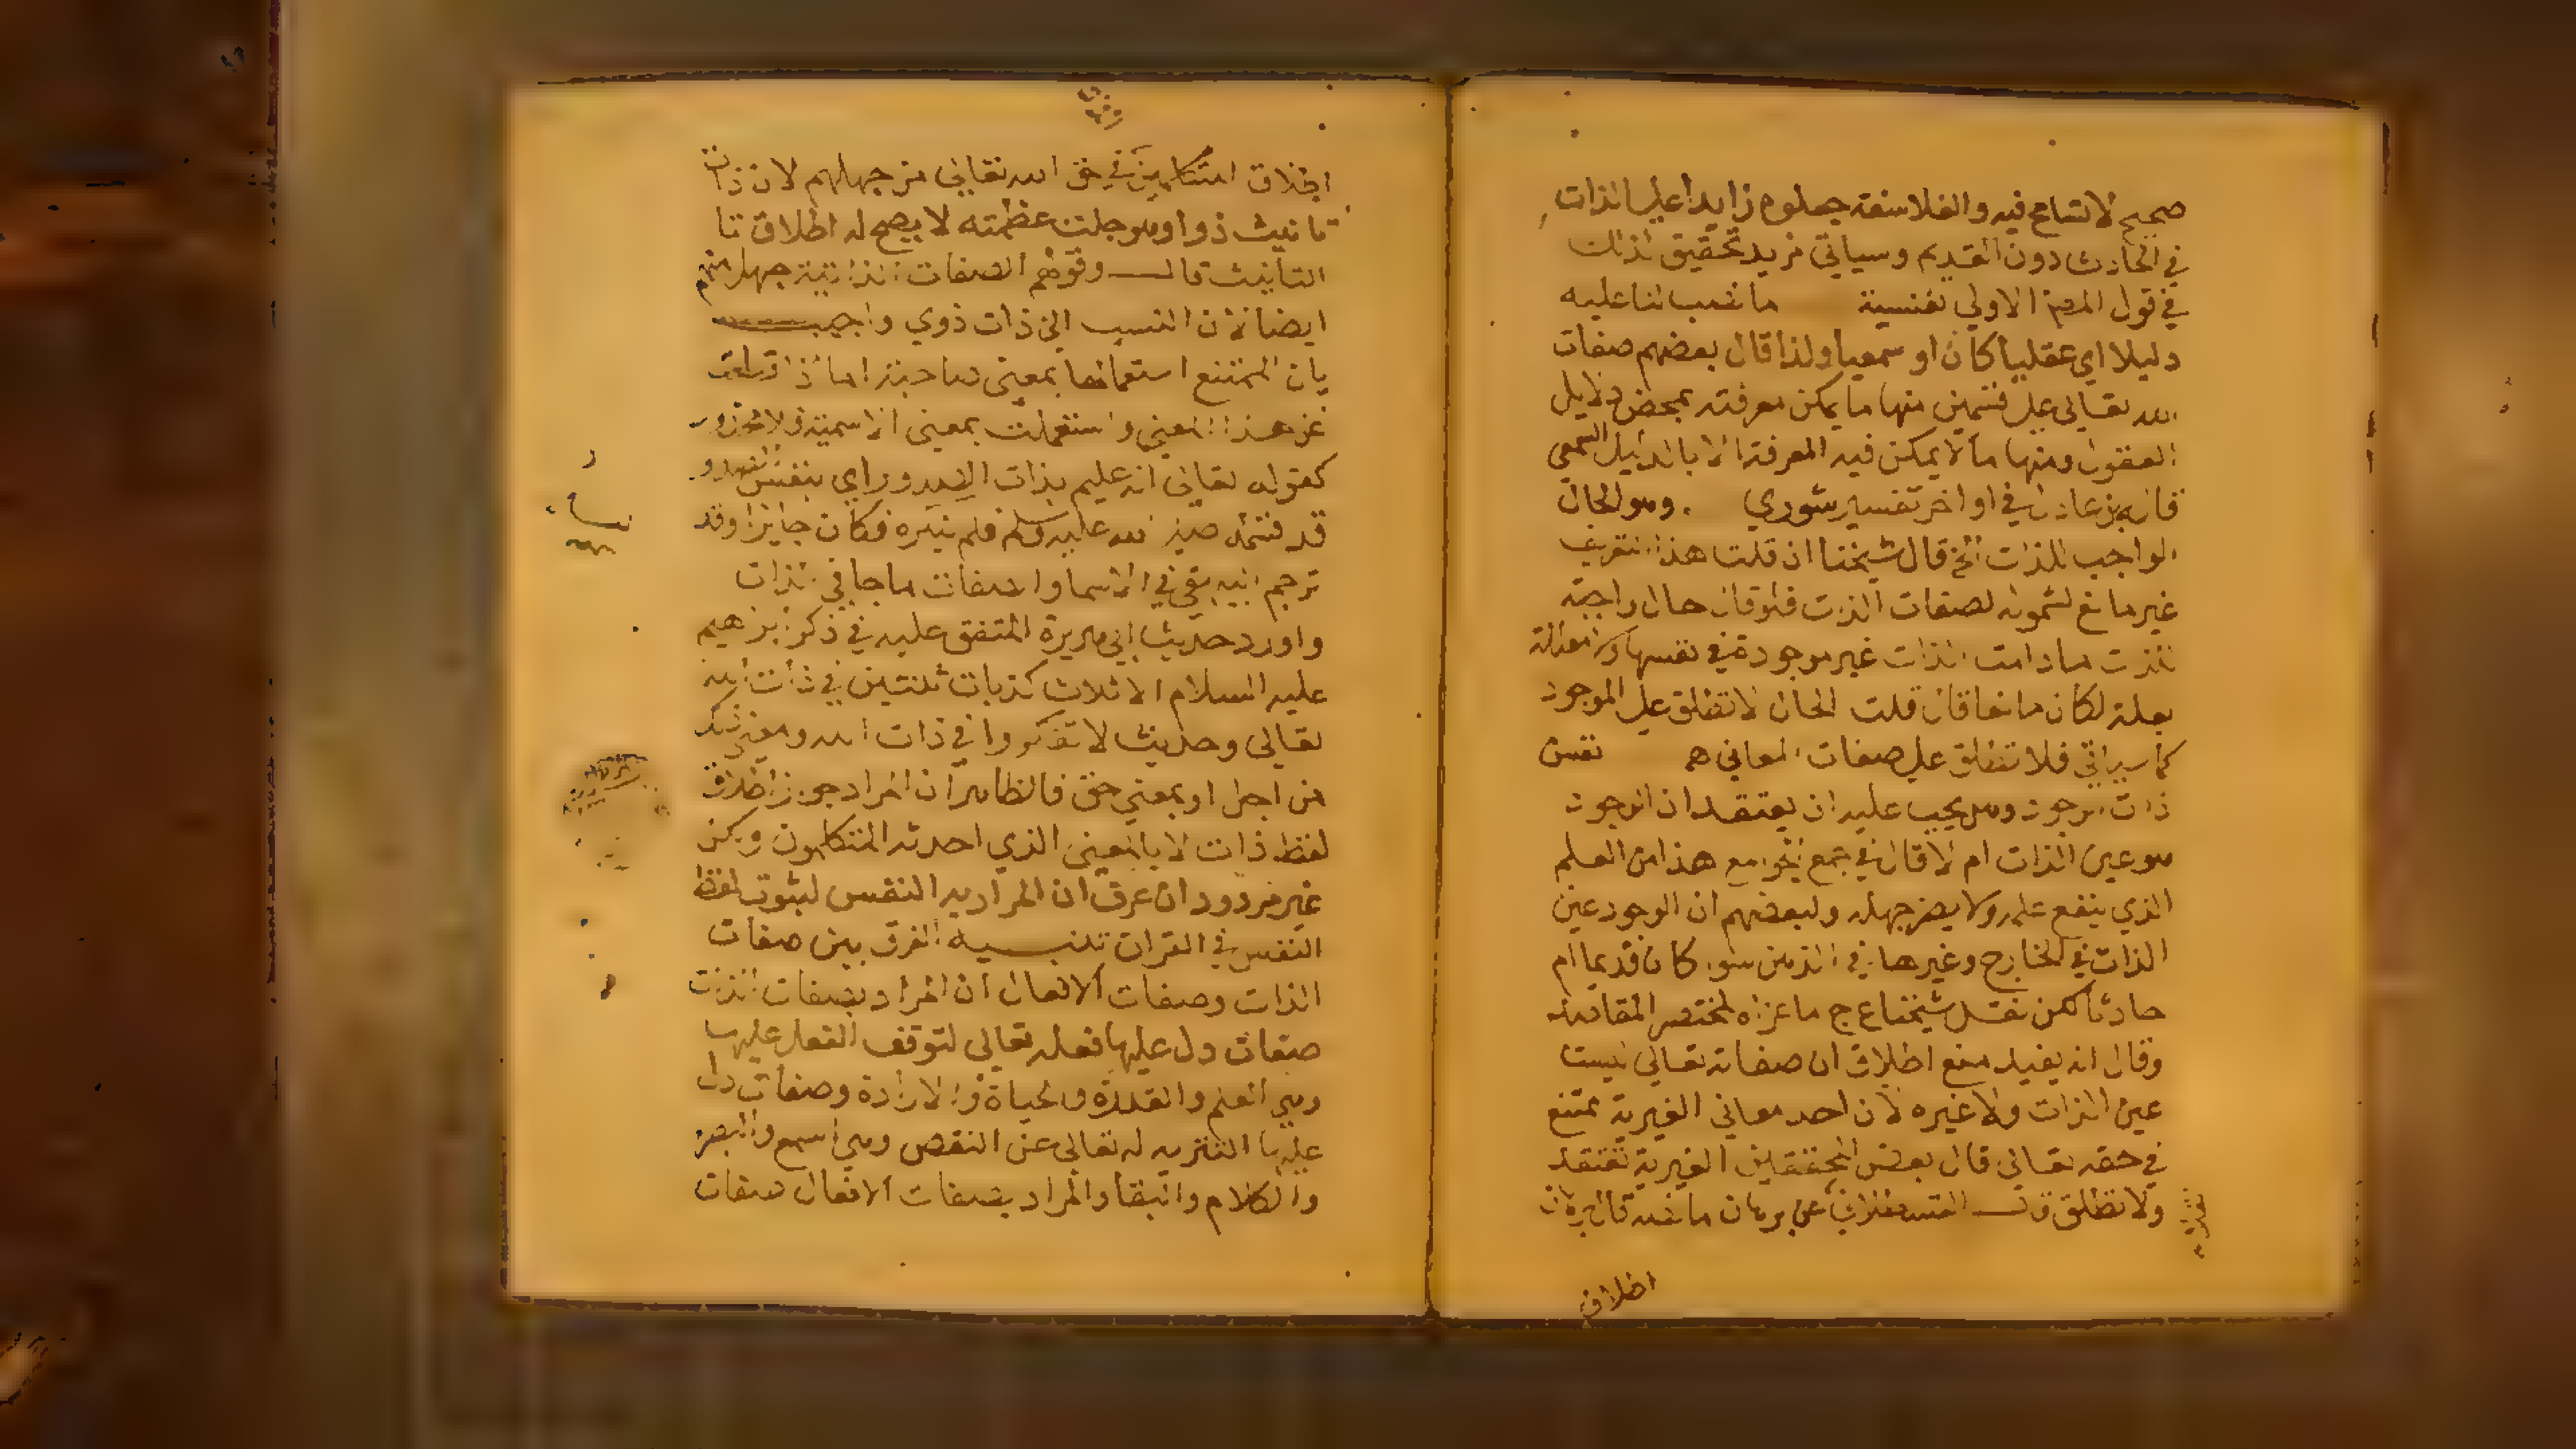 صحيح لا تسامح فيه والفلاسفة جعلوه زايدا على الذات
في الحادث دون القديم وسياتي مزيد تحقيق لذلك
في قول المص الاولى نفسية ما نصب لنا عليه
دليلا اي عقليا كان او سمعيا ولذا قال بعضهم صفات
الله تعالى على قسمين منها ما يمكن معرفته بمحض دلايل
العقول ومنها ما لا يمكن فيه المعرفة الا بالدليل السمعي
قاله بن عادل في اواخر تفسير شوري . وهو الحال
الواجب للذات الخ قال شيخنا ان قلت هذا التعريف
غير مانع لشموله لصفات الذات فلو قال حال واجبة
للذات ما دامت الذات غير موجودة في نفسها ولا معللة
بعلة لكان مانعا قال قلت الحال لا تطلق على الموجود
كما سياتي فلا تطلق على صفات المعاني نفس
ذات الوجود وهل يجب عليه ان يعتقد ان الوجود
هو عين الذات ام لا قال في جمع الجوامع هذا من العلم
الذي ينفع علمه ولا يضر جهله ولبعضهم ان الوجود عين
الذات في الخارج وغيرها في الذهن سوا كان قديما ام
حادثا لكن نقل شيخنا ع ج ما عزاه لمختصر المقاصد
وقال انه يفيد منع اطلاق ان صفاته تعالى ليست
عين الذات ولا غيره لان احد معاني الغيرية يمتنع
في حقه تعالى قال بعض المحققين الغيرية تعتقد
ولا تطلق قال التفتازاني عن برهان ما نصه قال برهان
اطلاق
اطلاق المتكلمين في حق الله تعالى من جهلهم لان ذات
تانيث ذو وهو جلت عظمته لا يصح له اطلاق تا
التانيث قال وقولهم الصفات الذاتية جهل منهم
ايضا لان النسب الى ذات ذوي واجيب
بان الممتنع استعمالها بمعنى صاحبة اما اذا قطعت
عن هذا المعنى واستعملت بمعنى الاسمية فلا محذور
كقوله تعالى انه عليم بذات الصدور اي بنفس الصدور
قد صلى الله عليه وسلم فلم ينكره فكان جايزا وقد
ترجم البيهقي في الاسما والصفات ما جا في الذات
واورد حديث ابي هريرة المتفق عليه في ذكر ابراهيم
عليه السلام الا ثلاث كذبات ثنتين في ذات الله
تعالى وحديث لا تفكروا في ذات الله ومعنى ذلك
من اجل او بمعنى حق فالظاهر ان المراد جواز اطلاق
لفظ ذات لا بالمعنى الذي احدثه المتكلمون ولكن
غير مردود ان عرف ان المراد به النفس لثبوت لفظ
النفس في القران تنبيه الفرق بين صفات
الذات وصفات الافعال ان المراد بصفات الذات
صفات دل عليها فعله تعالى لتوقف الفعل عليها
وهي العلم والقدرة والحياة والارادة وصفات دل
عليها التنزيه له تعالى عن النقص وهي السمع والبصر
والكلام والبقا والمراد بصفات الافعال صفات